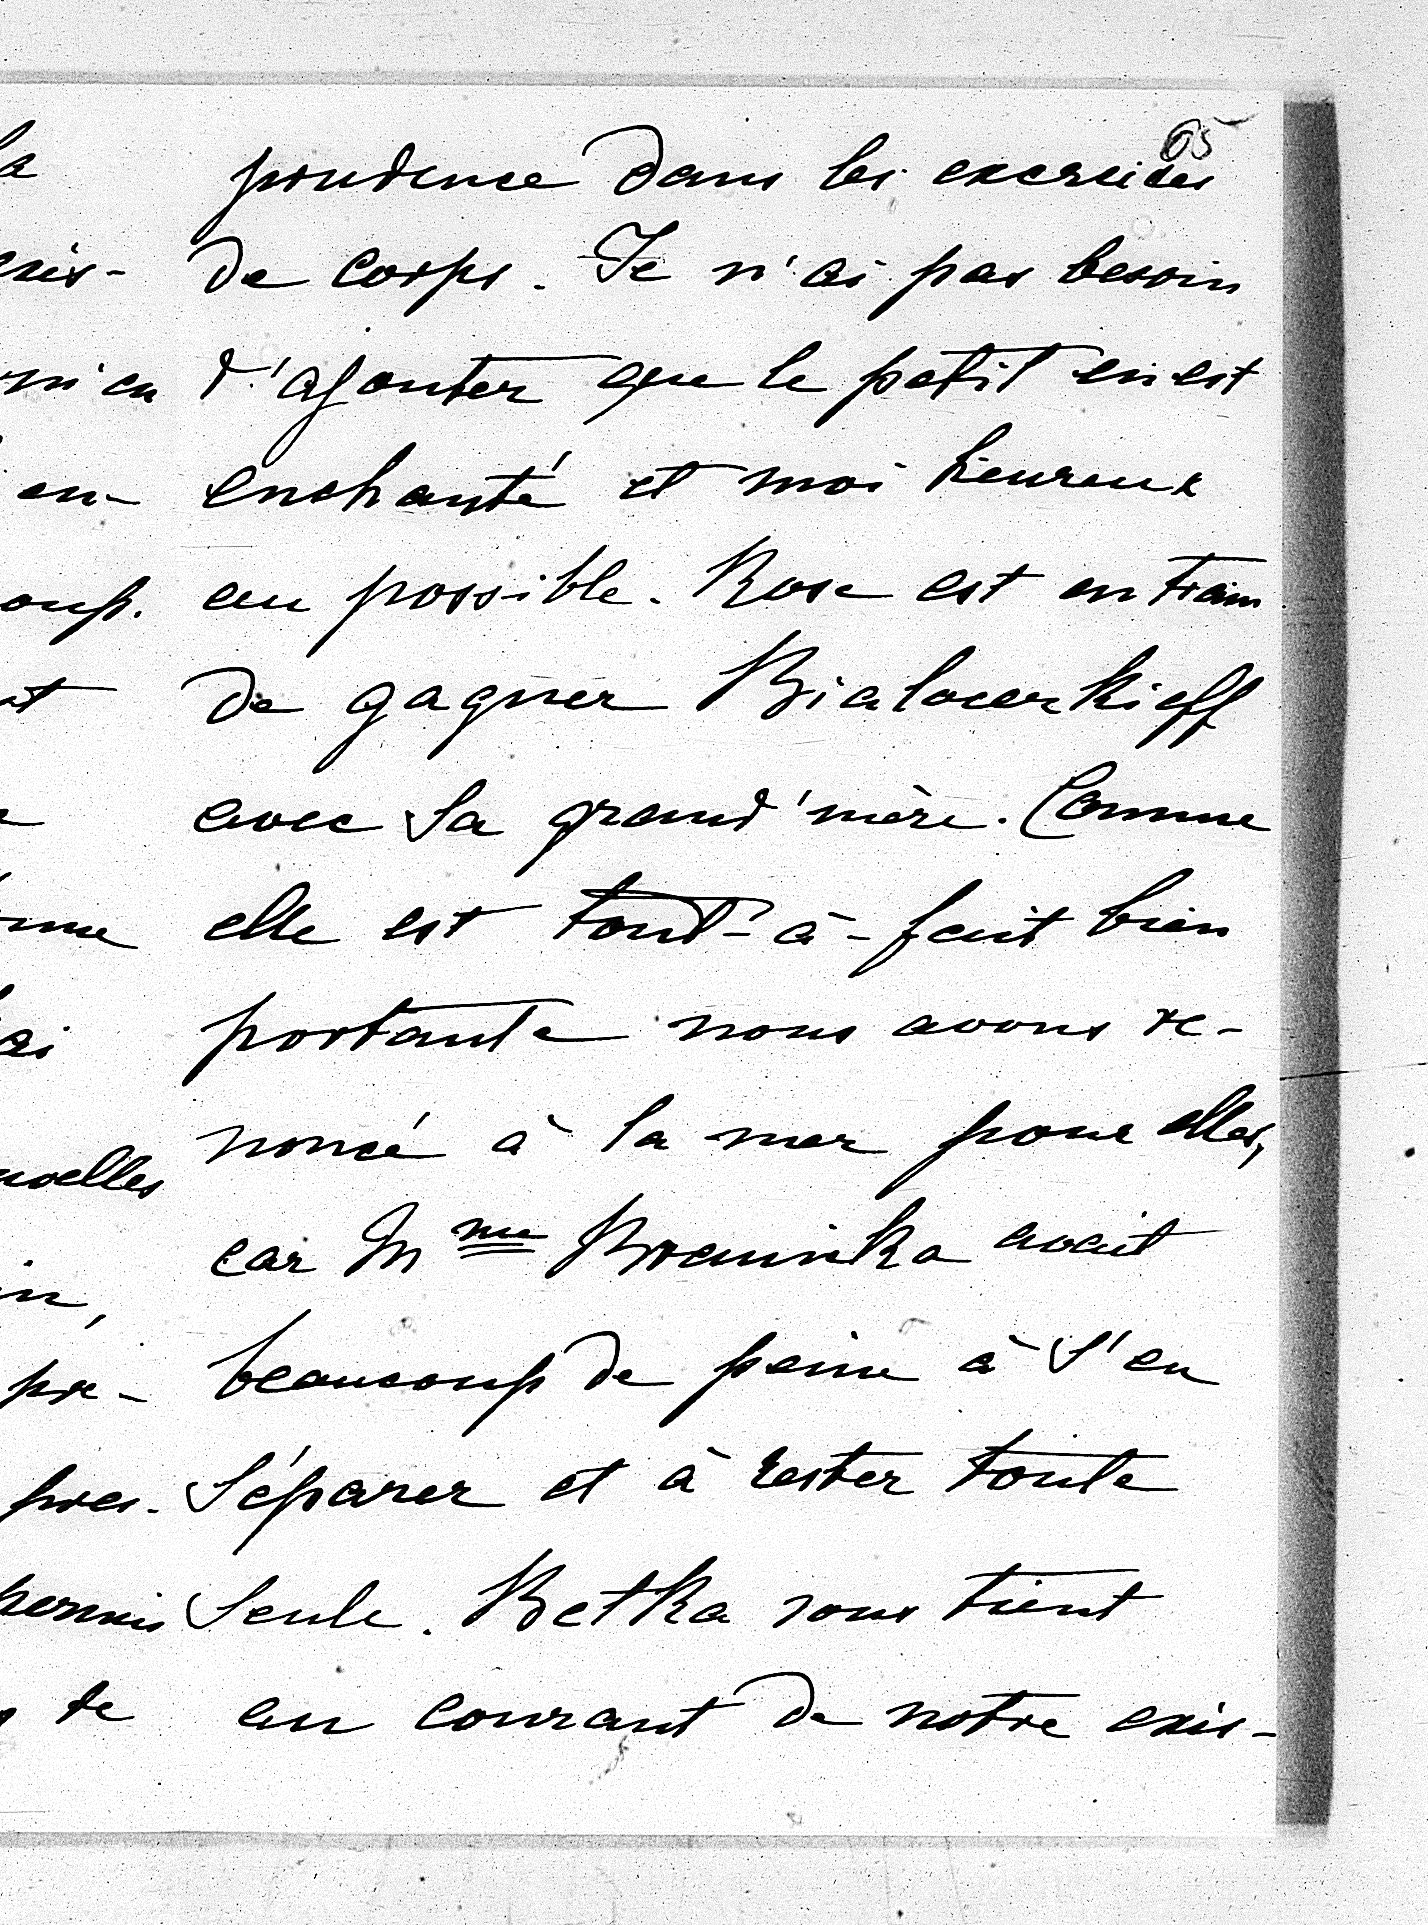 65
prudence dans les exercices
de corps. Je n'ai pas besoin
d'ajouter que le petit en est
enchanté et moi heureux
au possible. Rose est en train
de gagner Bialocerkieff
avec sa grand'mère. Comme
elle est tout-à-fait bien
portante nous avons re-
noncé à la mer pour elles,
car Mme Braninka avait
beaucoup de peine à s'en
séparer et à rester toute
seule. Betka vous tient
au courant de notre exis-
la
exis-
m'en
en-
oup.
at
me
ai
uvelles
in,
pre-
pres.
permis
te